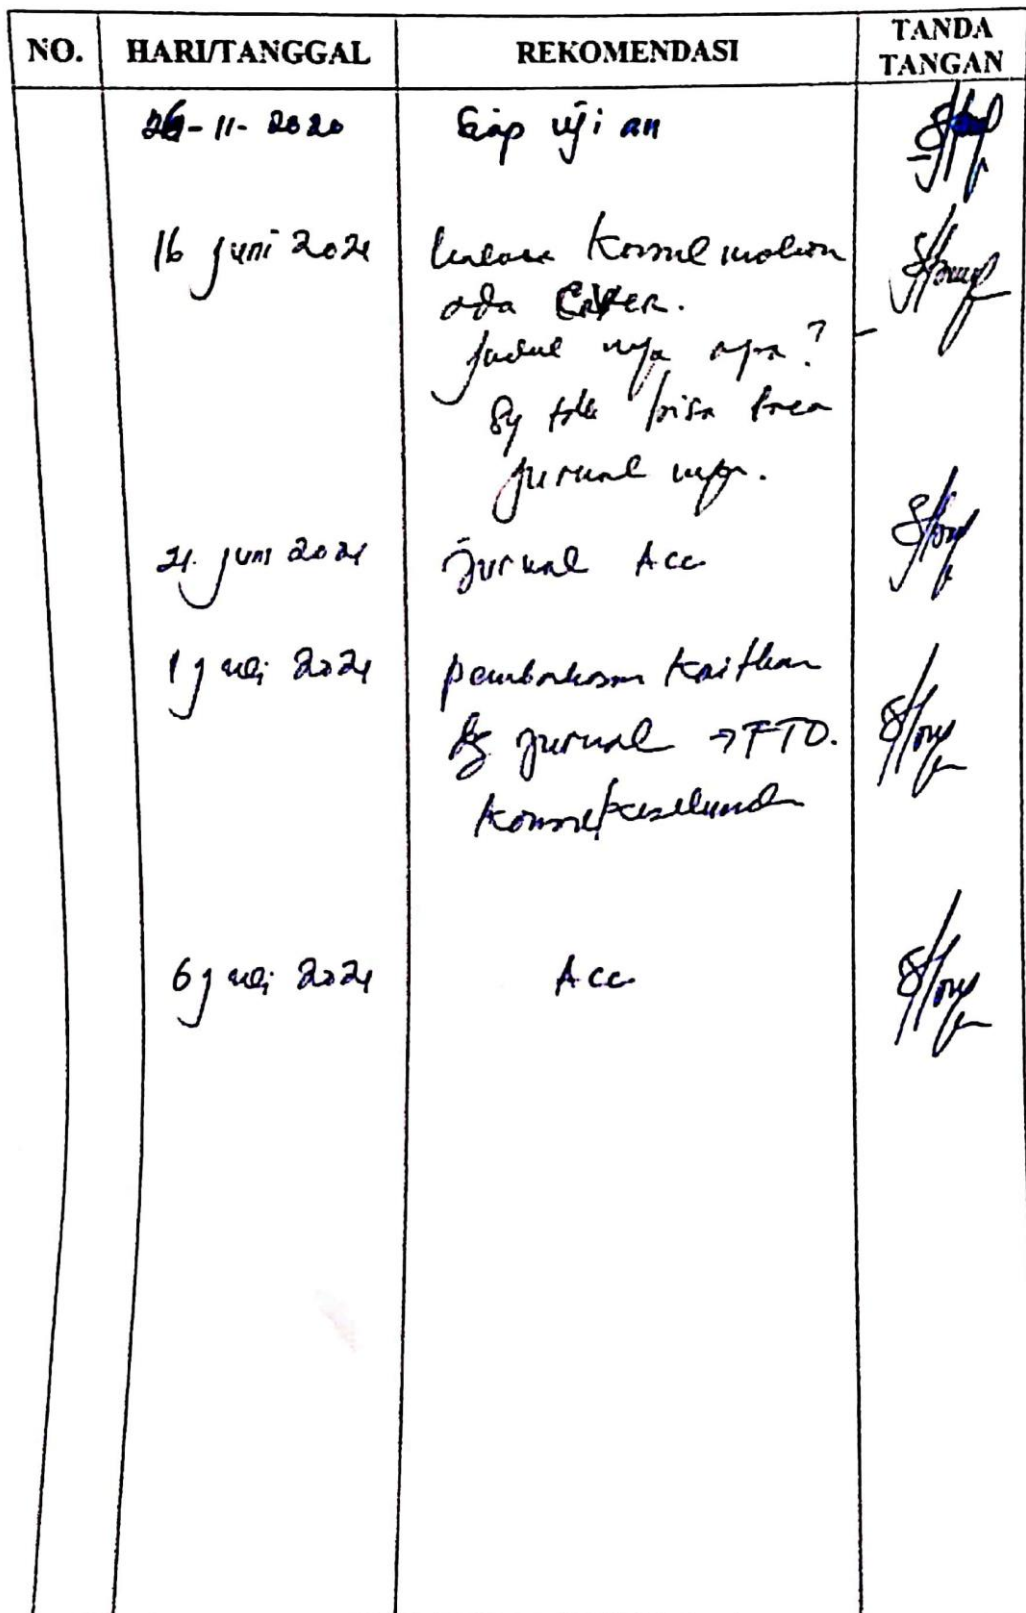 NO. HARI/TANGGAL REKOMENDASI TANDA TANGAN
26-11-2020 Siap ujian
16 Juni 2021 kalau Konsul mohon
ada COVER.
Judul nya apa?
Sy tdk bisa baca
jurnal nya.
21 Juni 2021 Jurnal Acc
1 Juli 2021 pembahasan Kaitkan
dg jurnal → FTO.
6 Juli 2021 Acc